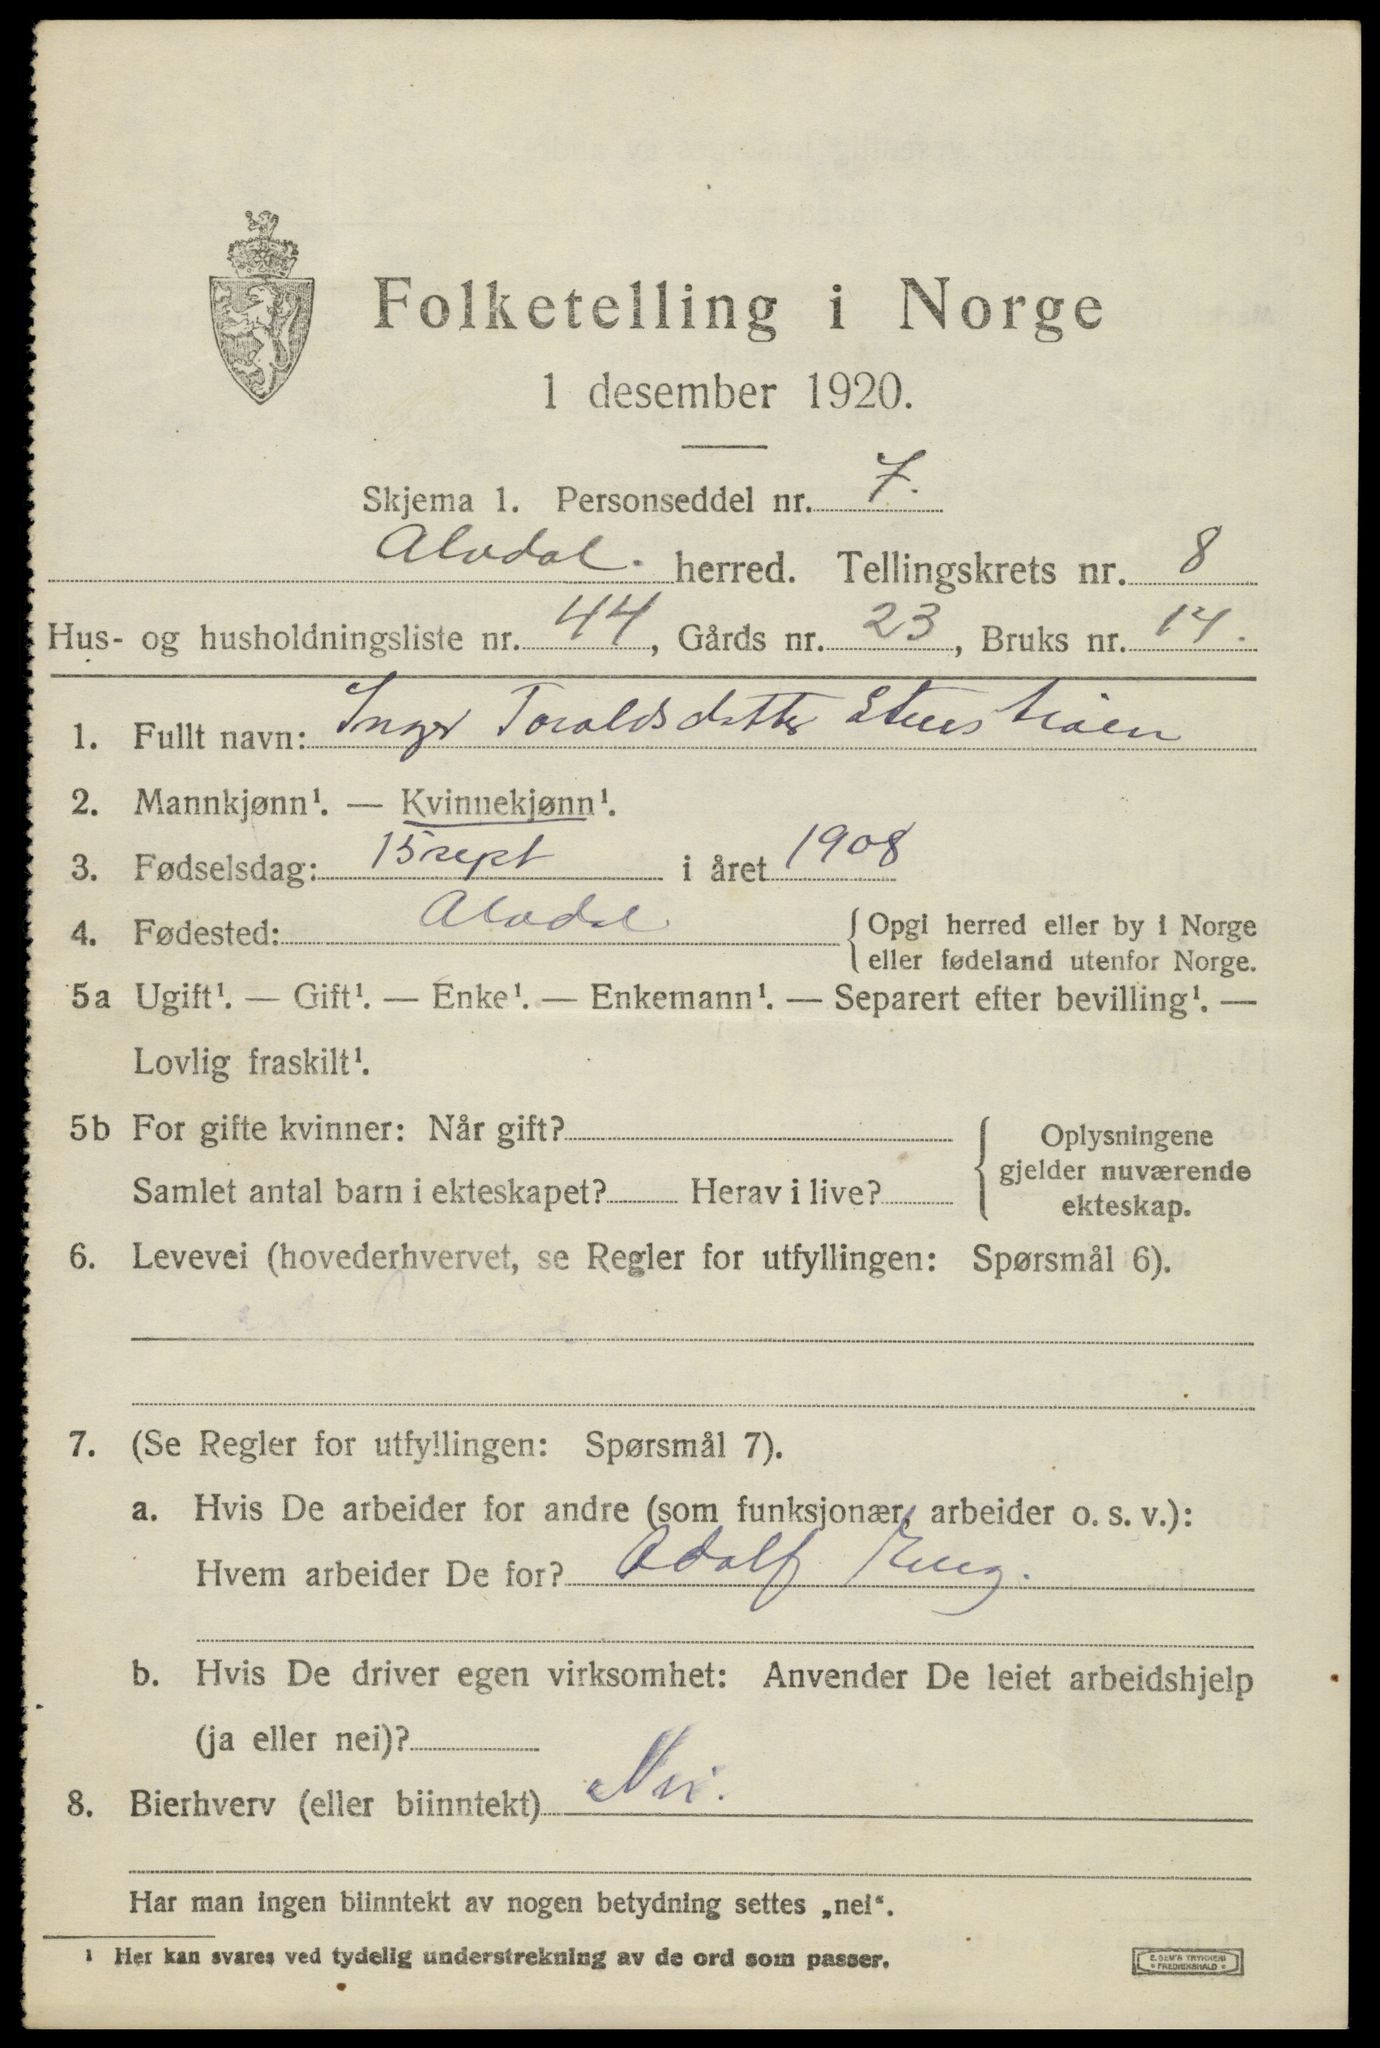 Folketelling i Norge
1 desember 1920.
Skjema 1. Personseddel nr. 7.
Alvdal. herred. Tellingskrets nr. 8
Hus- og husholdningsliste nr. 44, Gårds nr. 23, Bruks nr. 14.
1. Fullt navn: Inger Toraldsdatter
2. Mannkjønn¹. — Kvinnekjønn¹.
3. Fødselsdag: 15 sept i året 1908
4. Fødested: Alvdal { Opgi herred eller by i Norge
eller fødeland utenfor Norge.
5a Ugift¹. — Gift¹. — Enke¹. — Enkemann¹. — Separert efter bevilling¹. —
Lovlig fraskilt¹.
5b For gifte kvinner: Når gift?
Samlet antal barn i ekteskapet? Herav i live?
{ Oplysningene
gjelder nuværende
ekteskap.
6. Levevei (hovederhvervet, se Regler for utfyllingen: Spørsmål 6).
7. (Se Regler for utfyllingen: Spørsmål 7).
a. Hvis De arbeider for andre (som funksjonær, arbeider o. s. v.):
Hvem arbeider De for? Adolf
b. Hvis De driver egen virksomhet: Anvender De leiet arbeidshjelp
(ja eller nei)?
8. Bierhverv (eller biinntekt) Nei.
Har man ingen biinntekt av nogen betydning settes „nei“.
¹ Her kan svares ved tydelig understrekning av de ord som passer.
E. SEM'S TRYKKERI
FREDRIKSHALD